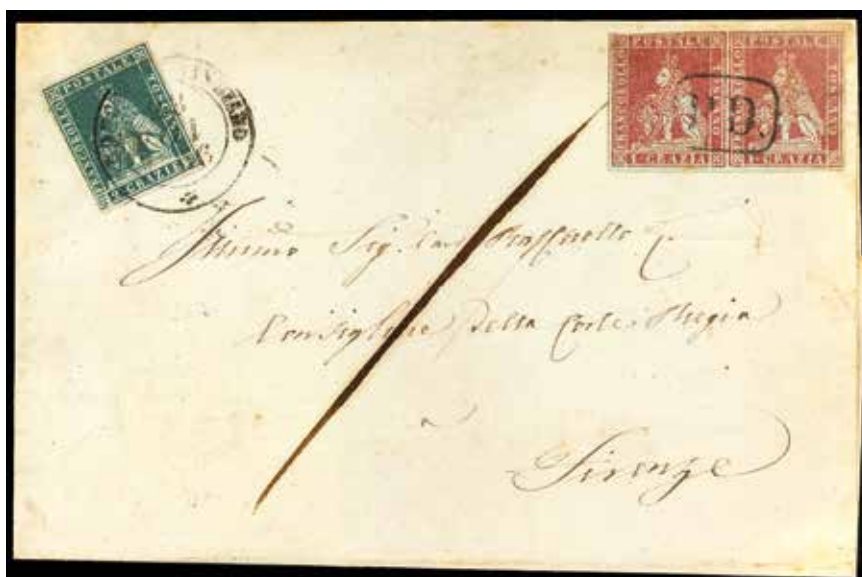 FRANCOBOLLO POSTALE TOSCANO
2 CRAZIE
FRANCOBOLLO POSTALE TOSCANO
1 CRAZIA
FRANCOBOLLO POSTALE TOSCANO
1 CRAZIA
P.D.
Sig.
Consigliere Della Corte Regia
a
Firenze